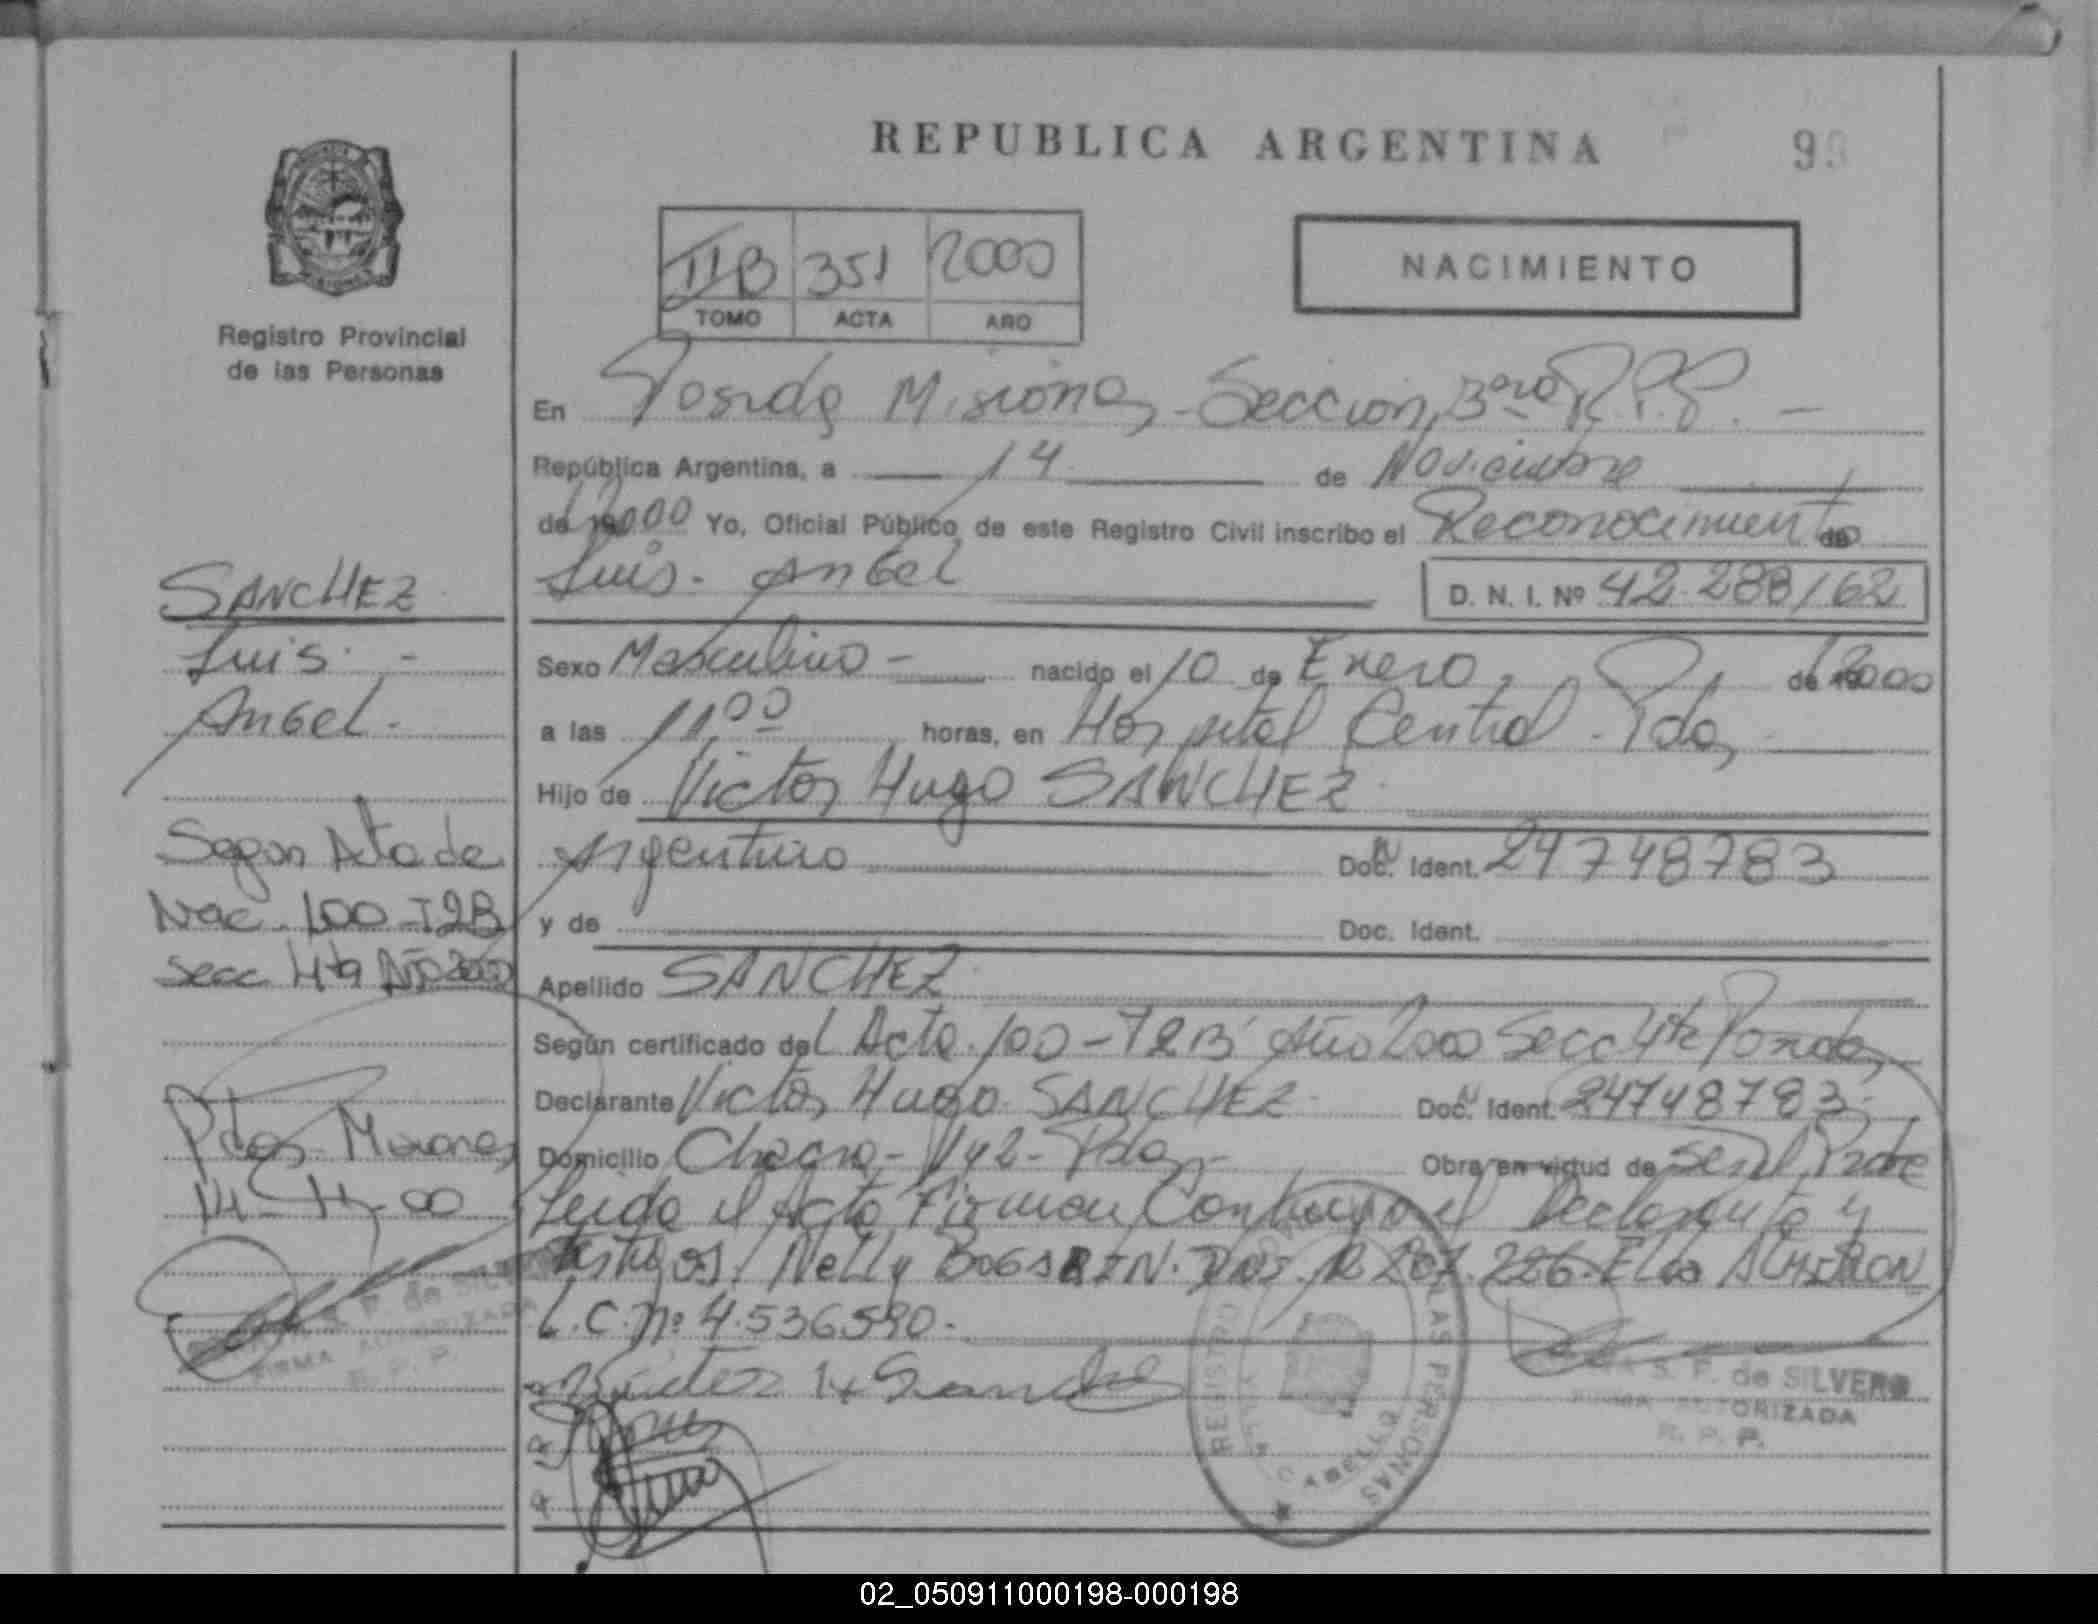 REPUBLICA ARGENTINA 99
IIB 351 2000
TOMO ACTA AÑO
NACIMIENTO
Registro Provincial
de las Personas
En Posadas Misiones - Sección 3era R.P.P. -
República Argentina, a 14 de Noviembre
de 2000 Yo, Oficial Público de este Registro Civil inscribo el Reconocimiento de
Luis Angel D. N. I. Nº 42.288/62
SANCHEZ
Luis
Angel
Sexo Masculino - nacido el 10 de Enero de 2000
a las 11,00 horas, en Hospital Central Pdas
Hijo de Victor Hugo SANCHEZ
Argentino Doc. Ident. 24748783
y de Doc. Ident.
Apellido SANCHEZ
Según certificado del Acta 100 - T2B Año 2000 Secc 4ta Posadas
Declarante Victor Hugo SANCHEZ Doc. Ident. 24748783
Domicilio Chacra - Pdas - Obra en virtud de ser el Padre
Leida el Acta Firman el Declarante y
testigos Nelly ELSA
L.C. nº 4.536590.
Segun Acta de
Nac. 100 - T2B
Secc 4ta Año 2000
Pdas - Misiones
14 - 11 - 00
Victor H Sanchez
S. P. de SILVERO
FIRMA AUTORIZADA
R. P. P.
S. P. de
FIRMA AUTORIZADA
R. P. P.
REGISTRO DE LAS PERSONAS
VILLA CABELLO
02_050911000198-000198